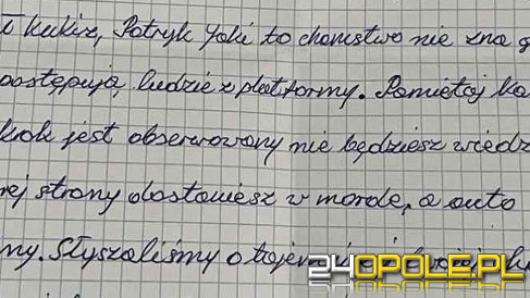 i Kukiz, Patryk Jaki to chamstwo nie zna g
postępują ludzie z platformy. Pamiętaj ka
krok jest obserwowany nie będziesz wiedz
rej strony dostaniesz w mordę, a auto
my. Słyszeliśmy o
24OPOLE.PL